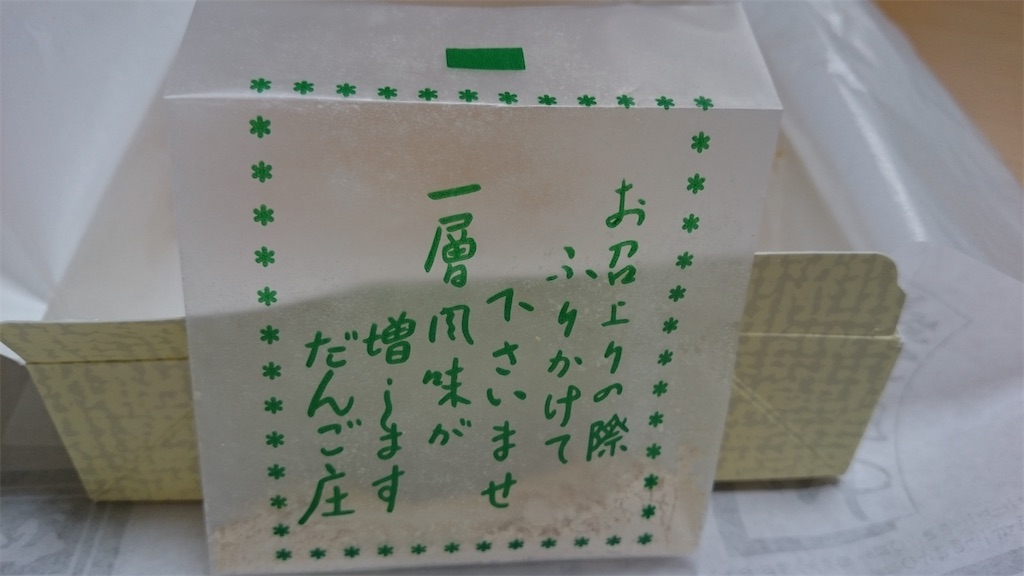 お召上りの際
ふりかけて
下さいませ
一層風味が
増します
だんご庄